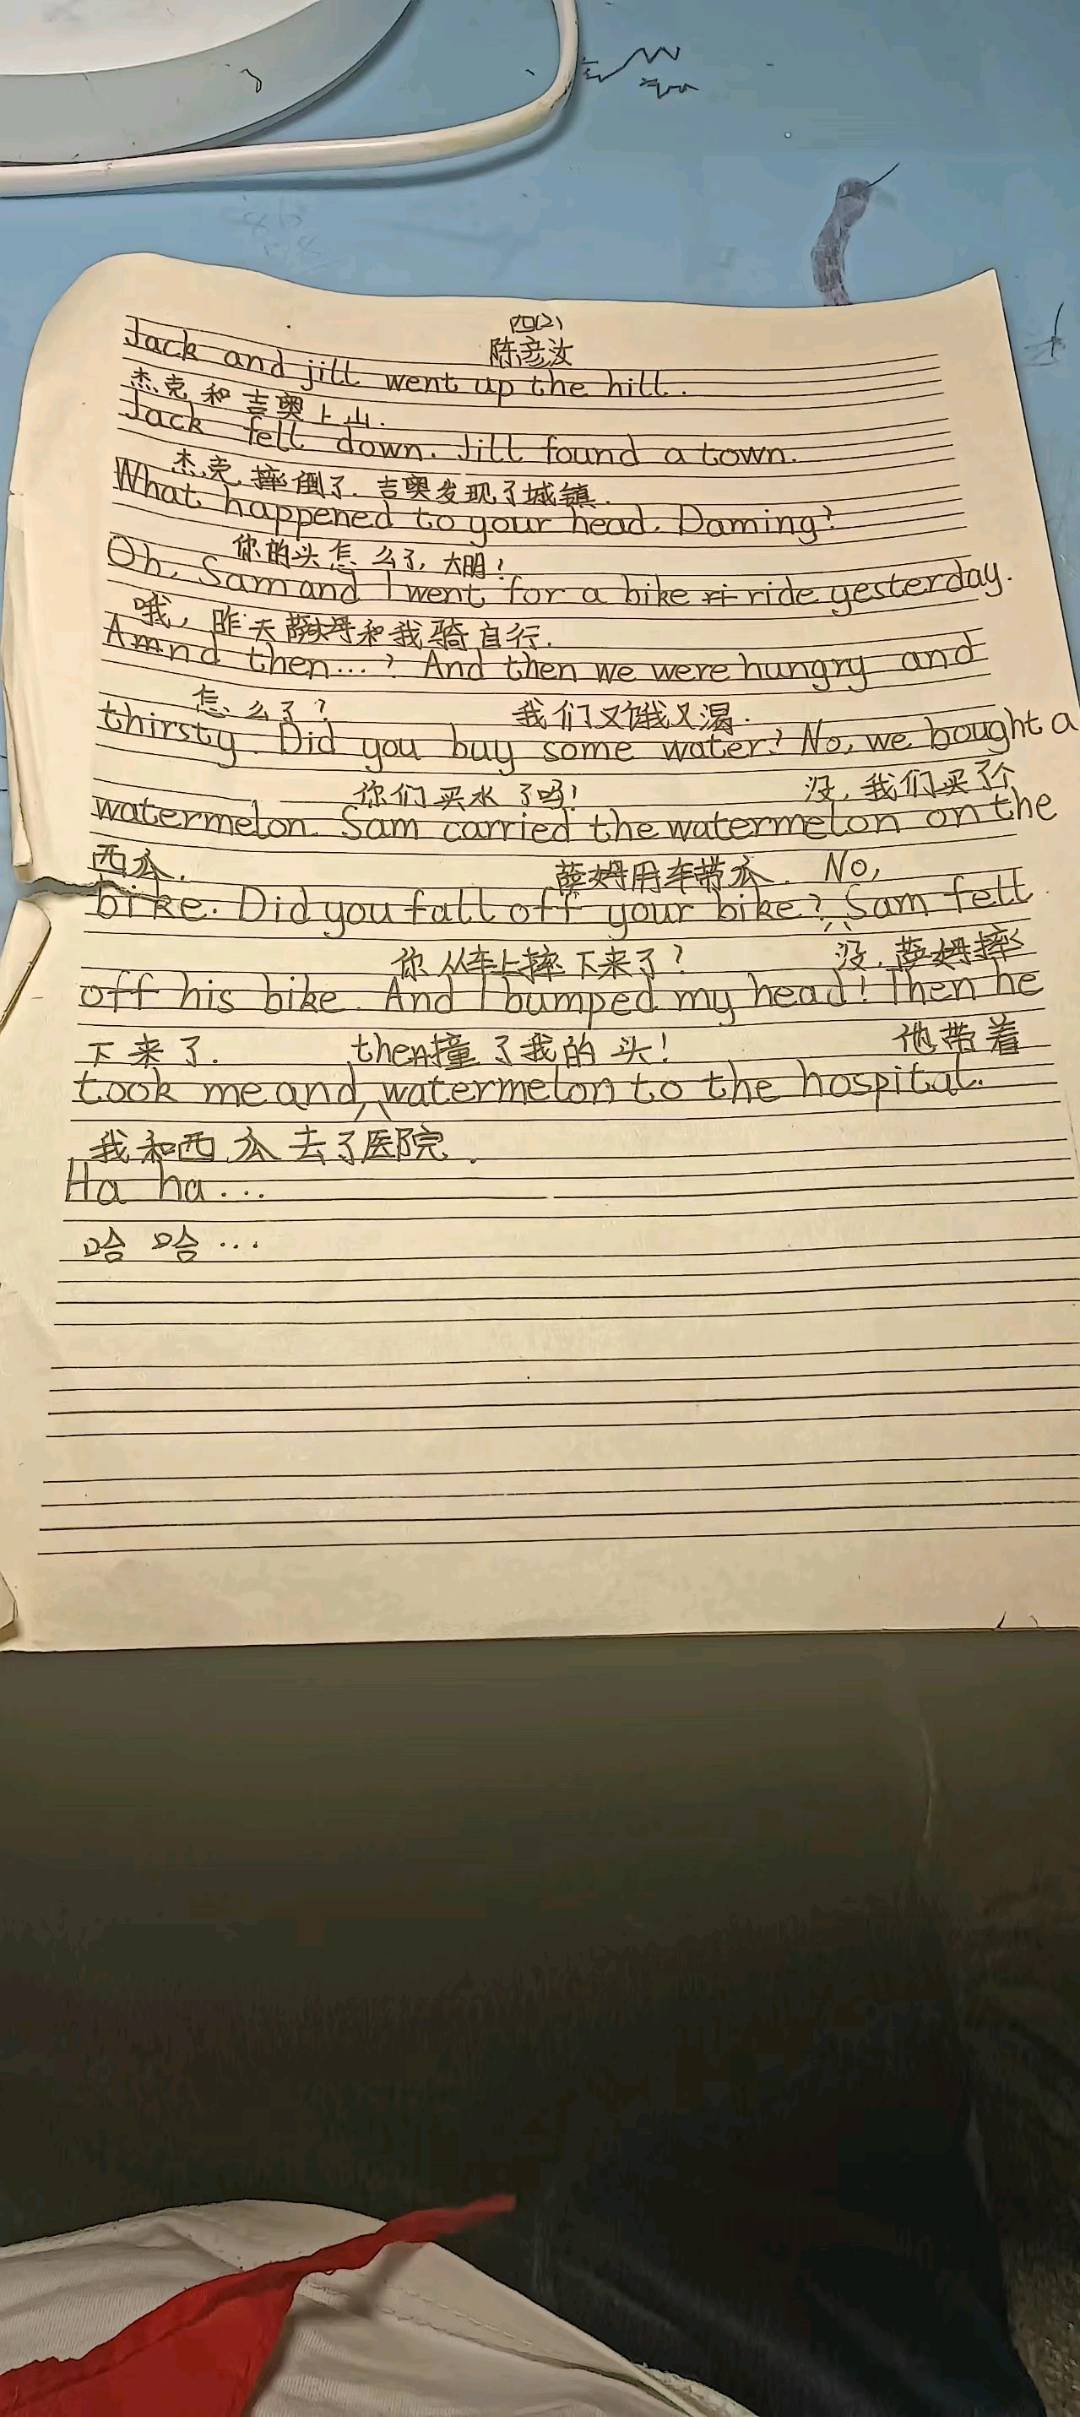 四(2)
陈彦汝
Jack and jill went up the hill.
杰克和吉奥上山.
Jack fell down. Jill found a town.
杰克摔倒了.吉奥发现了城镇.
What happened to your head. Daming?
你的头怎么了,大明?
Oh. Sam and I went for a bike ride yesterday.
哦,昨天萨姆和我骑自行.
Amnd then...? And then we were hungry and
怎么了? 我们又饿又渴.
thirsty. Did you buy some water? No, we bought a
你们买水了吗? 没,我们买了个
watermelon. Sam carried the watermelon on the
西瓜. 萨姆用车带瓜. No,
bike. Did you fall off your bike? Sam fell
你从车上摔下来了? 没,萨姆摔
off his bike. And I bumped my head! Then he
下来了. then撞了我的头! 他带着
took me and watermelon to the hospital.
我和西瓜去了医院.
Ha ha...
哈哈...